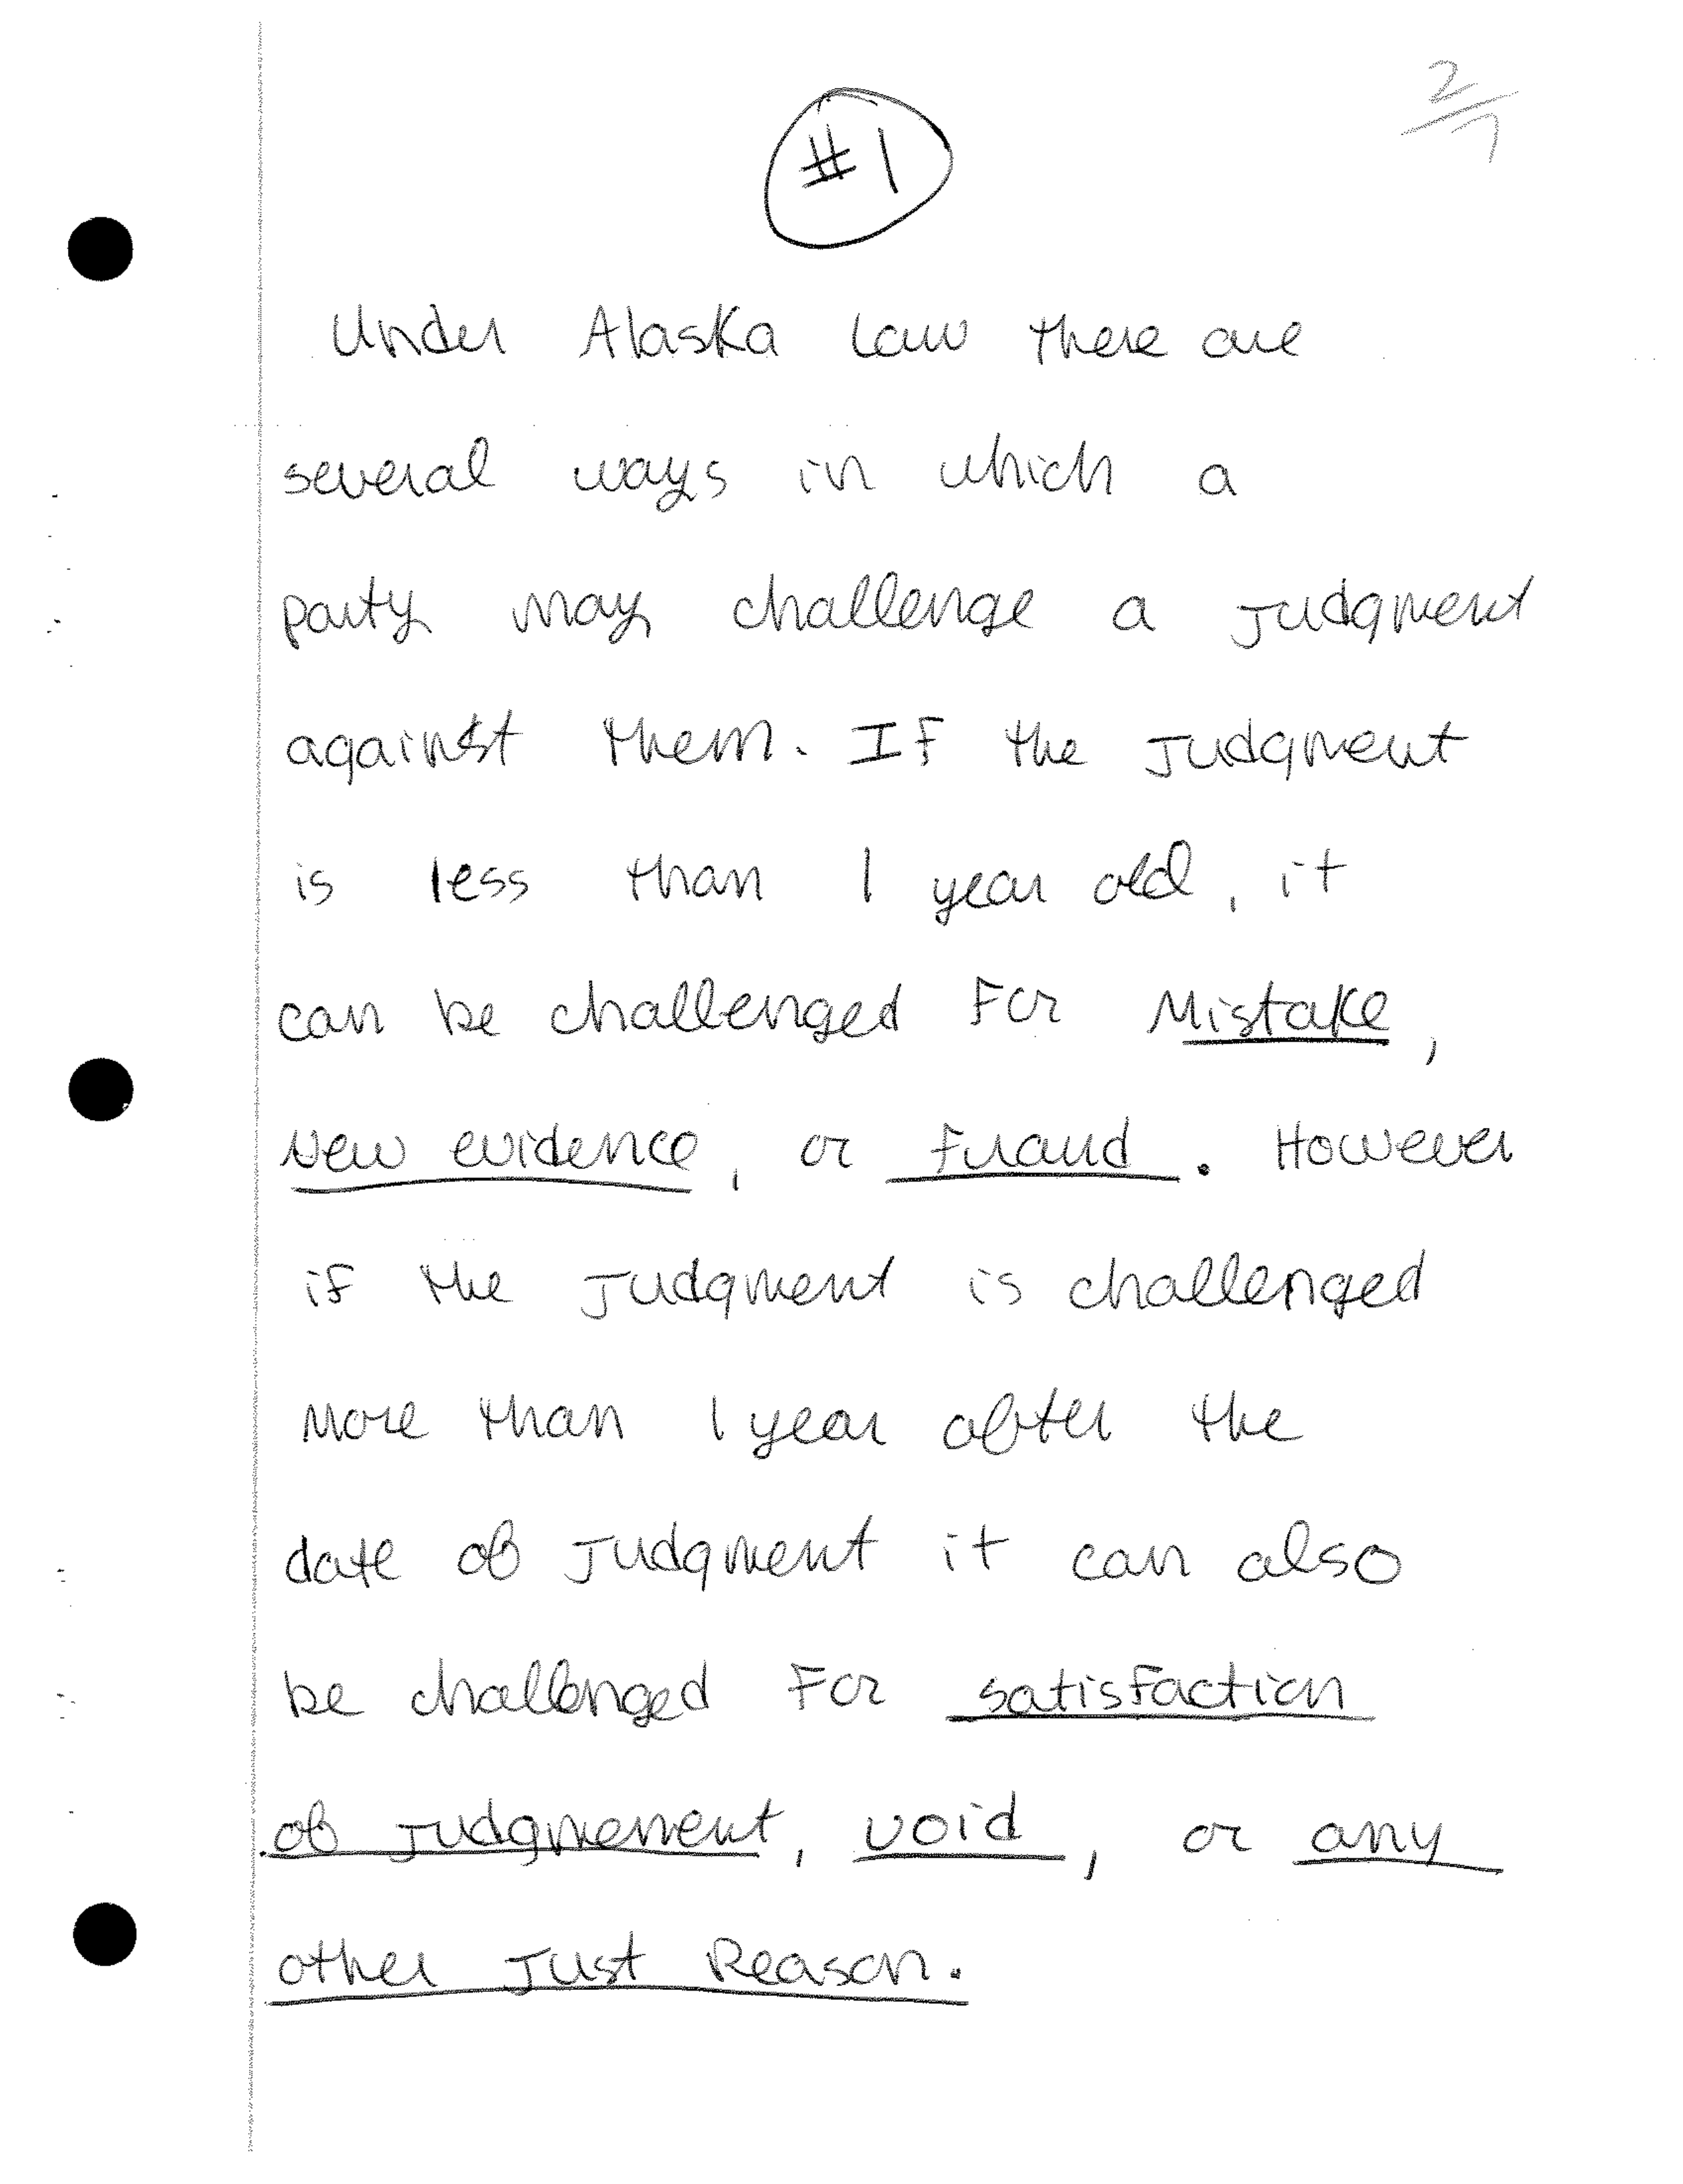 2/7
#1
Under Alaska Law there are
several ways in which a
party may challenge a Judgment
against them. IF the Judgment
is less than 1 year old, it
can be challenged For Mistake,
New evidence, or Fraud. However
if the Judgment is challenged
more than 1 year after the
date of Judgment it can also
be challenged For satisfaction
of Judgmenent, void, or any
other Just Reason.